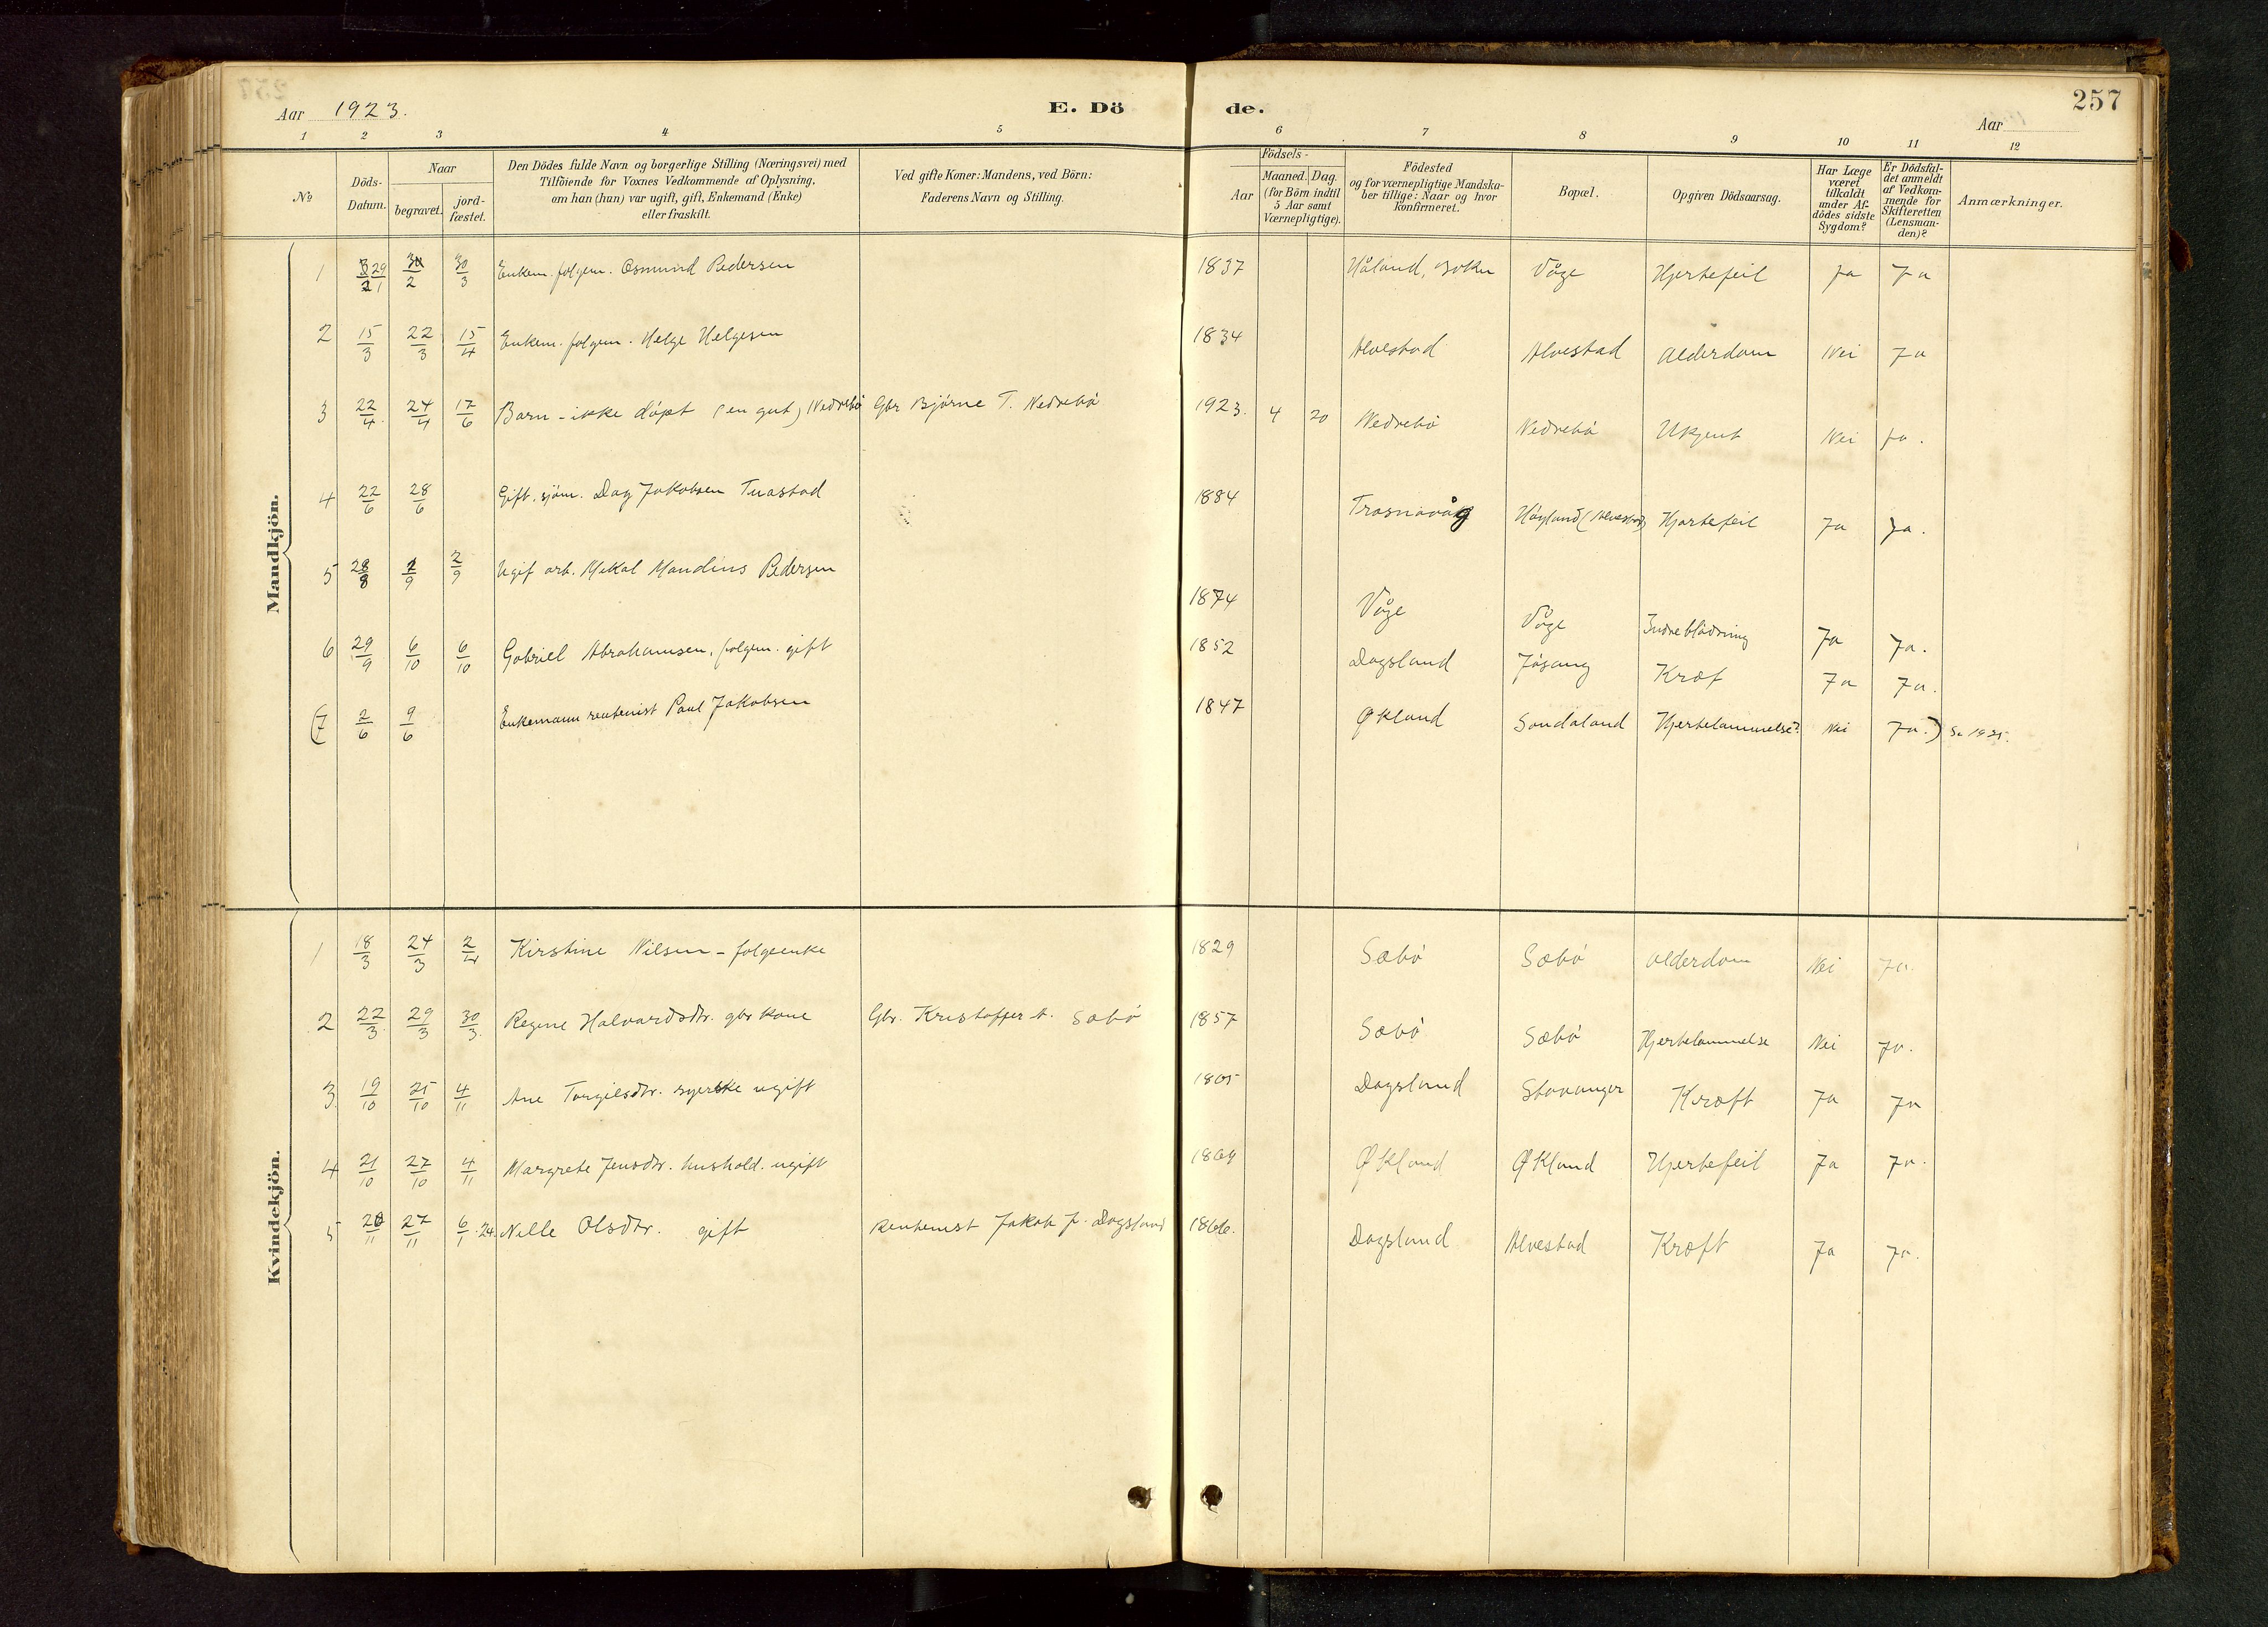 257
Aar 1923.
E. Dö de.
Aar
1 2 3 4 5 6 7 8 9 10 11 12
No
Döds-Datum.
Naar
begravet.
jord-fæstet.
Den Dödes fulde Navn og borgerlige Stilling (Næringsvei) med
Tilföiende for Voxnes Vedkommende af Oplysning,
om han (hun) var ugift, gift, Enkemand (Enke)
eller fraskilt.
Ved gifte Koner: Mandens, ved Börn:
Faderens Navn og Stilling.
Födsels-
Aar
Maaned. Dag.
(for Börn indtil
5 Aar samt
Værnepligtige).
Födested
og for værnepligtige Mandska-
ber tillige: Naar og hvor
konfirmeret.
Bopæl.
Opgiven Dödsaarsag.
Har Læge
været
tilkaldt
under Af-
dödes sidste
Sygdom?
Er Dödsfal-
det anmeldt
af Vedkom-
mende for
Skifteretten
(Lensman-
den)?
Anmærkninger.
Mandkjön.
1 29/1 30/3 Enkem. folgem. Osmund Pedersen 1837 Håland, Våge Hjertefeil Ja Ja
2 15/3 22/3 15/4 Enkem. folgem. Helge Helgesen 1834 Alvestad Alvestad Alderdom Nei Ja
3 22/4 24/4 17/6 Barn - ikke døpt (en gut) Nedrebø Gbr Bjarne T. Nedrebø 1923. 4 20 Nedrebø Nedrebø Ukjent Nei Ja.
4 22/6 28/6 Gift. sjøm. Dag Jakobsen Tuastad 1884 Trosnavåg Høyland (Alvestad) Hjertefeil Ja Ja.
5 28/8 2/9 Ugif arb. Mikal Mandius Pedersen 1874 Våge Våge Indreblødning Ja Ja.
6 29/9 6/10 6/10 Gabriel Abrahamsen, folgem. gift 1852 Dagsland Jøsang Kræf Ja Ja.
(7 2/6 9/6 Enkemann rentenist Paul Jakobsen 1847 Økland Sandaland Hjertelammelse? Nei Ja.) Se 1925.
Kvindekjön.
1 18/3 24/3 2/4 Kirstine Nilsen - folgeenke 1829 Sæbø Sæbø Alderdom Nei Ja.
2 22/3 29/3 30/3 Regine Halvardsdtr. gbr kone Gbr. Kristoffer t. Sæbø 1857 Sæbø Sæbø Hjertelammelse Nei Ja.
3 19/10 25/10 4/11 Ane Torgilsdtr. syerske ugift Dagsland Stavanger Kræft Ja Ja
4 21/10 27/10 4/11 Margrete Jensdtr. hushold. ugift 1864 Økland Økland Hjertefeil Ja Ja.
5 20/11 27/11 6/1 24. Nelle Olsdtr. gift Rentenist Jakob J. Dagsland 1866. Dagsland Alvestad Kræft Ja Ja.